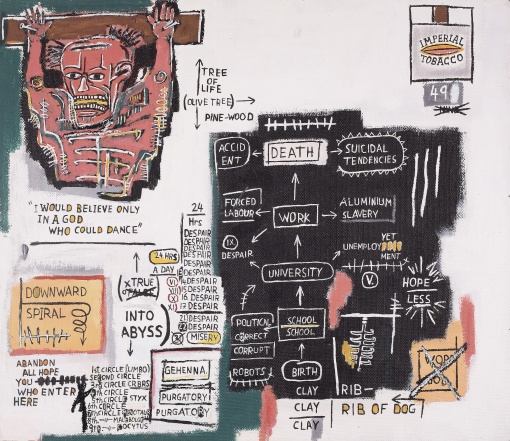 IMPERIAL
TOBACCO
49
TREE
OF
LIFE
(OLIVE TREE)
PINE-WOOD
"I WOULD BELIEVE ONLY
IN A GOD
WHO COULD DANCE"
24
Hrs
DESPAIR
DESPAIR
DESPAIR
DESPAIR
DESPAIR
DESPAIR
24 HRS
A DAY
XTRUE
INTO
ABYSS
DESPAIR
15 DESPAIR
16 DESPAIR
17 DESPAIR
21 DESPAIR
DESPAIR
MISERY
DOWNWARD
SPIRAL
ABANDON
ALL HOPE
YOU
WHO ENTER
HERE
CIRCLE (LIMBO)
SECOND CIRCLE
3RD CIRCLE
STYX
GEHENNA
PURGATORY
PURGATORY
ACCID
ENT
DEATH
SUICIDAL
TENDENCIES
FORCED
LABOUR
WORK
ALUMINIUM
SLAVERY
IX
DESPAIR
UNEMPLOY
YET
MENT
UNIVERSITY
V.
HOPE
LESS
POLITICAL
CORRECT
CORRUPT
SCHOOL
SCHOOL
ROBOTS
BIRTH
CLAY
CLAY
CLAY
RIB-
RIB OF DOG